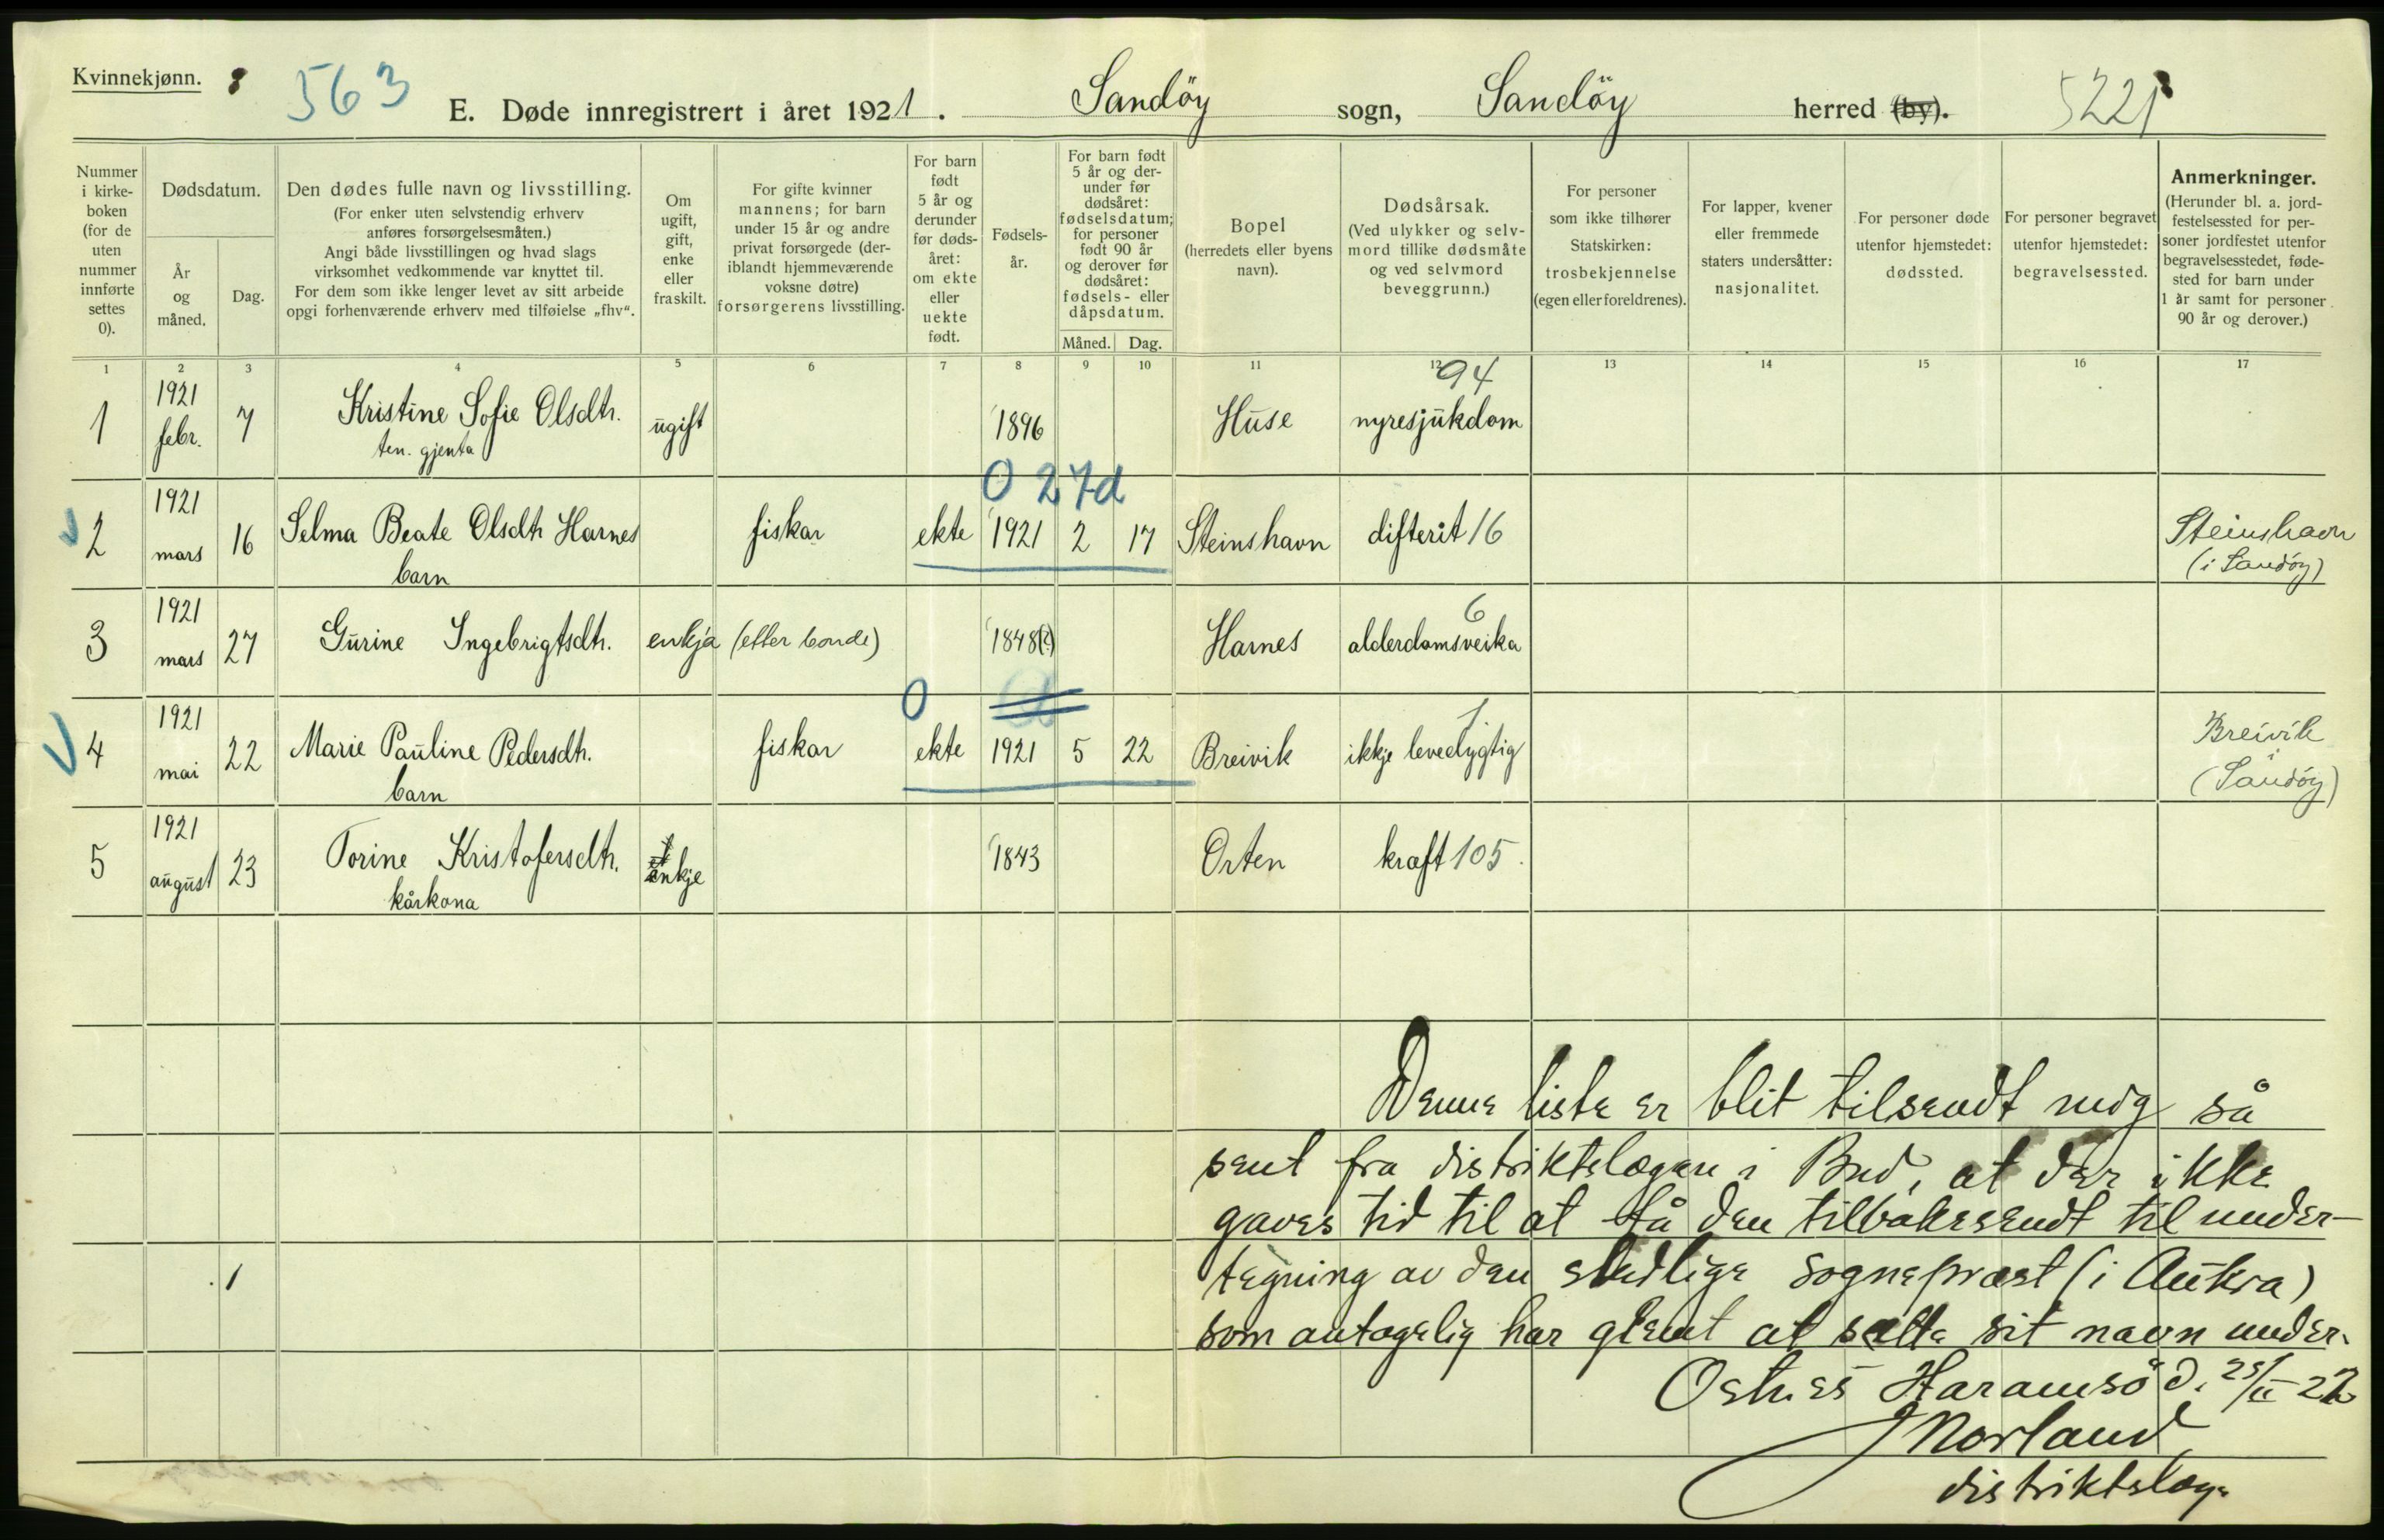 Kvinnekjønn. 8 563
E. Døde innregistrert i året 1921. Sandöy sogn, Sandöy herred (by). 5221
Nummer i kirke-boken (for de uten nummer innførte settes 0).
Dødsdatum.
År og måned.
Dag.
Den dødes fulle navn og livsstilling.
(For enker uten selvstendig erhverv
anføres forsørgelsesmåten.)
Angi både livsstillingen og hvad slags
virksomhet vedkommende var knyttet til.
For dem som ikke lenger levet av sitt arbeide
opgi forhenværende erhverv med tilføielse „fhv“.
Om ugift, gift, enke eller fraskilt.
For gifte kvinner
mannens; for barn
under 15 år og andre
privat forsørgede (der-
iblandt hjemmeværende
voksne døtre)
forsørgerens livsstilling.
For barn født 5 år og derunder før døds-året: om ekte eller uekte født.
Fødsels-år.
For barn født
5 år og der-
under før
dødsåret:
fødselsdatum;
for personer
født 90 år
og derover før
dødsåret:
fødsels- eller
dåpsdatum.
Måned. Dag.
Bopel
(herredets eller byens
navn).
Dødsårsak.
(Ved ulykker og selv-
mord tillike dødsmåte
og ved selvmord
beveggrunn.)
For personer
som ikke tilhører
Statskirken:
trosbekjennelse
(egen eller foreldrenes).
For lapper, kvener
eller fremmede
staters undersåtter:
nasjonalitet.
For personer døde
utenfor hjemstedet:
dødssted.
For personer begravet
utenfor hjemstedet:
begravelsessted.
Anmerkninger.
(Herunder bl. a. jord-
festelsessted for per-
soner jordfestet utenfor
begravelsesstedet, føde-
sted for barn under
1 år samt for personer
90 år og derover.)
1 2 3 4 5 6 7 8 9 10 11 12 13 14 15 16 17
94
1 1921 febr. 7 Kristine Sofie Olsdtr. ugift 1896 Huse nyresjukdom
ten. gjenta
0 27d
2 1921 mars 16 Selma Beate Olsdtr Harnes fiskar ekte 1921 2 17 Steinshavn difterit 16 Steinshavn
barn (i Sandöy)
6
3 1921 mars 27 Gurine Ingebrigtsdtr. enkja (etter bonde) 1848(?) Harnes alderdomsveika
0 1
4 1921 mai 22 Marie Pauline Pedersdtr. fiskar ekte 1921 5 22 Breivik ikkje levedygtig Breivik
barn (Sandöy)
5 1921 august 23 Torine Kristofersdtr. enkje 1843 Orten kræft 105.
kårkona
Denne liste er blit tilsendt mig så
sent fra distriktslægen i Bud, at der ikke
gaves tid til at få den tilbakesendt til under-
tegning av den stedlige sogneprest (i Aukra)
som antagelig har glemt at sætte sit navn under.
1
Haramsö d. 25/II-22
Morland
distriktslæge